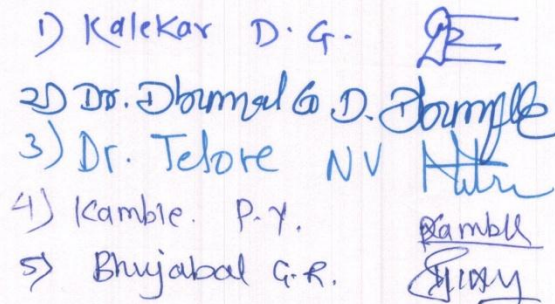 1) Kalekar D. G.
2) Dr. Dhumal G D.
3) Dr. Telore NV Nitin
4) Kamble. P.Y. Kamble
5) Bhujabal G.R.